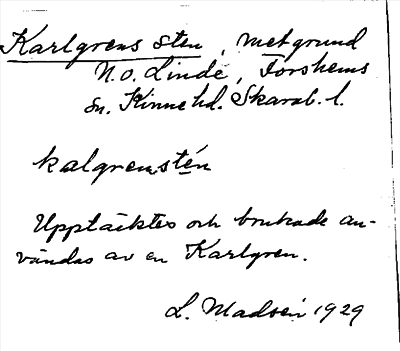 Karlgrens sten, metgrund
N.O. Linde, Forshems
sn. Kinne hd. Skarab. l.
kalgrenstén
Upptäcktes och brukade an-
vändas av en Karlgren.
L. Madsén 1929